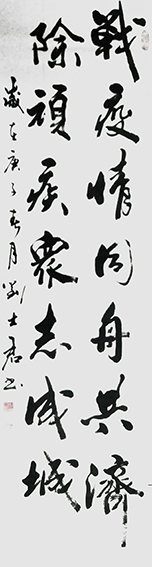 戰疫情同舟共濟
除頑疾衆志成城
歲在庚子春月劉士君书